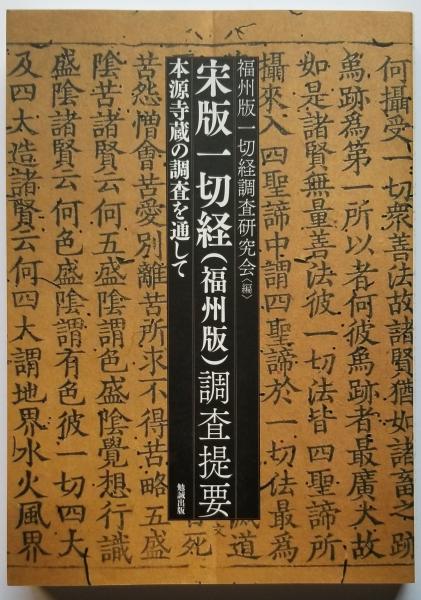 何攝受一切衆善法諸賢猶如諸畜之跡
象跡爲第一所以者何彼象跡者最廣大故
如是諸賢無量善法彼一切法皆四聖諦所
攝來入四聖諦中謂四聖諦於一切法最爲
福州版一切経調査研究会〈編〉
宋版一切経(福州版)調査提要
本源寺蔵の調査を通して
勉誠出版
滅道
文
苦怨憎會苦愛別離苦所求不得苦略五盛
陰苦諸賢云何五盛陰謂色盛陰覺想行識
盛陰諸賢云何色盛陰謂有色彼一切四大
及四大造諸賢云何四大謂地界水火風界